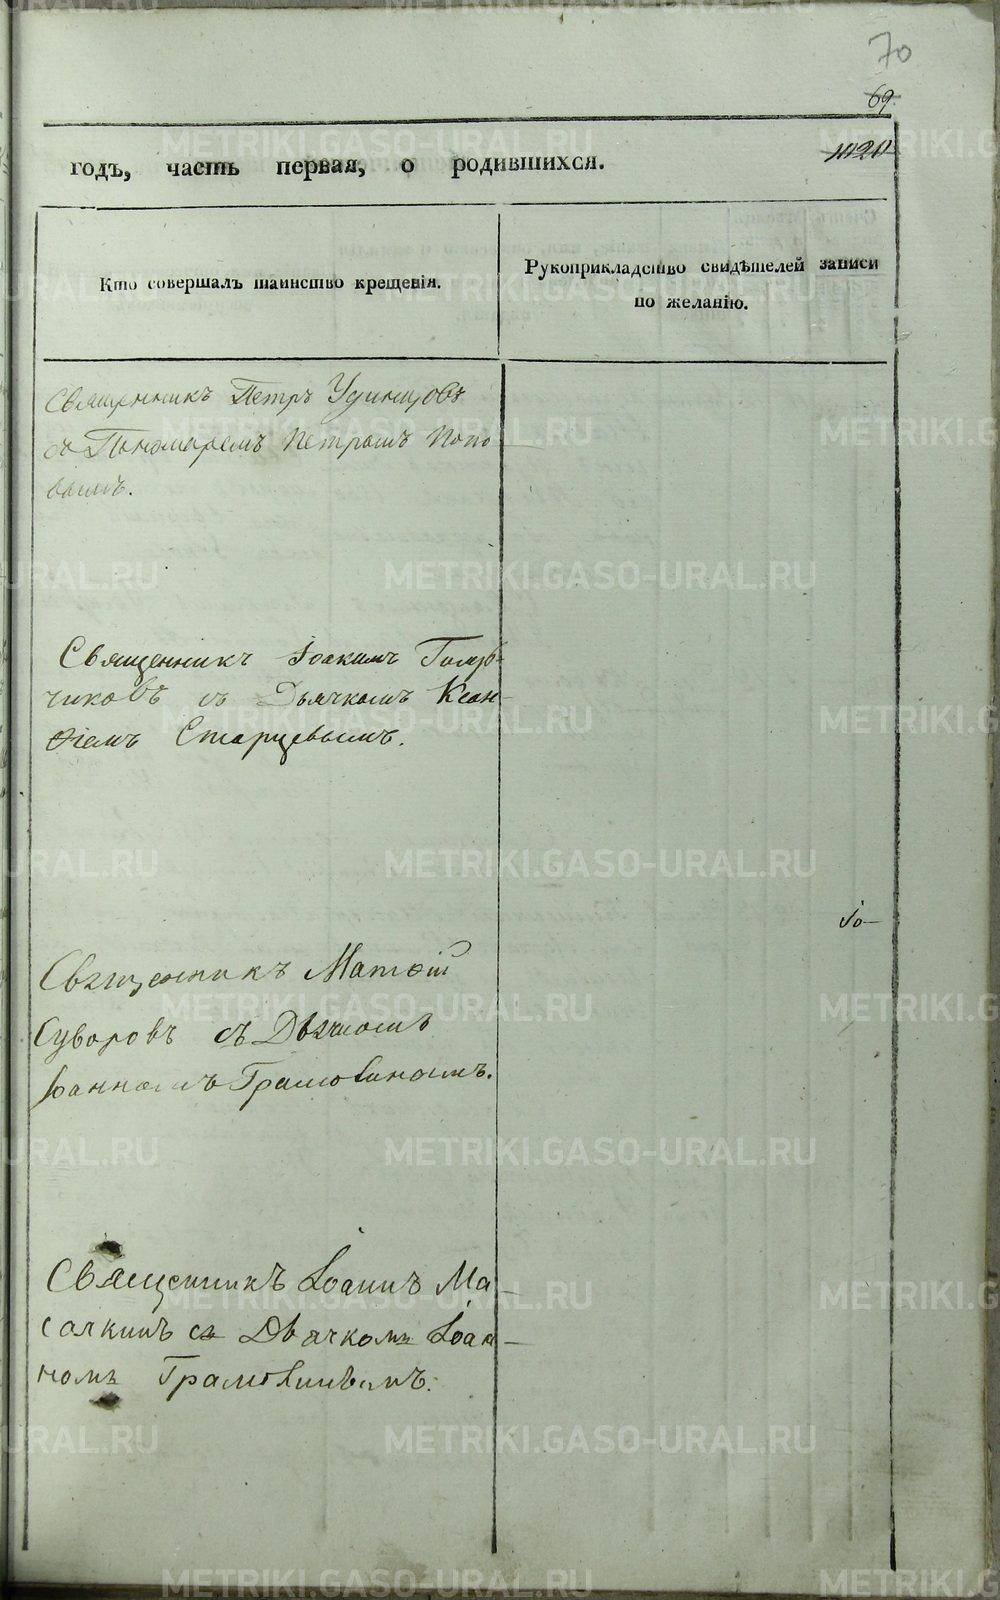 70
69.
годъ, часть первая, о родившихся.
Кто совершалъ таинство крещенія.
Рукоприкладство свидѣтелей записи
по желанію.
Священникъ Петръ Удинцовъ
съ Пономаремъ Петромъ Попо
вымъ.
Священникъ Іоакимъ
чиковъ съ Дьячкомъ Ксан-
ѳіемъ Старцевымъ.
Священникъ Матѳій
Суворовъ съ Дьячкомъ
Іоанномъ Грамолинымъ.
Священникъ Іоаннъ Ма-
салкинъ съ Дьячкомъ Іоан-
номъ Грамолинымъ.
METRIKI.GASO-URAL.RU